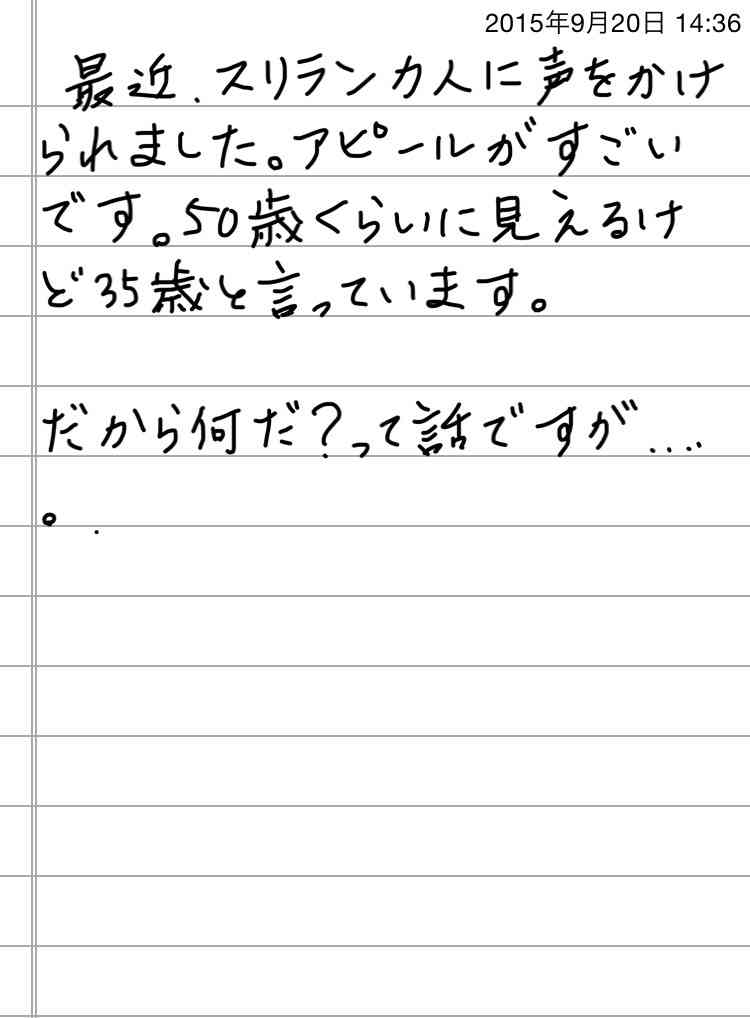 2015年9月20日 14:36
最近、スリランカ人に声をかけ
られました。アピールがすごい
です。50歳くらいに見えるけ
ど35歳と言っています。
だから何だ?って話ですが....
。.